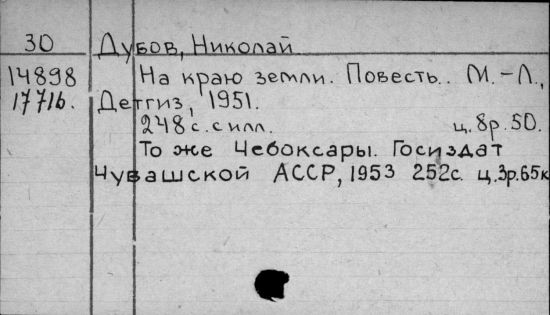 30 Дубов, Николай
14898 На краю земли. Повесть.. М.-Л.,
17716. Детгиз, 1951.
248с. с илл. ц. 8р. 50.
То же Чебоксары. Госиздат
Чувашской АССР, 1953 252с. ц. 3р. 65к